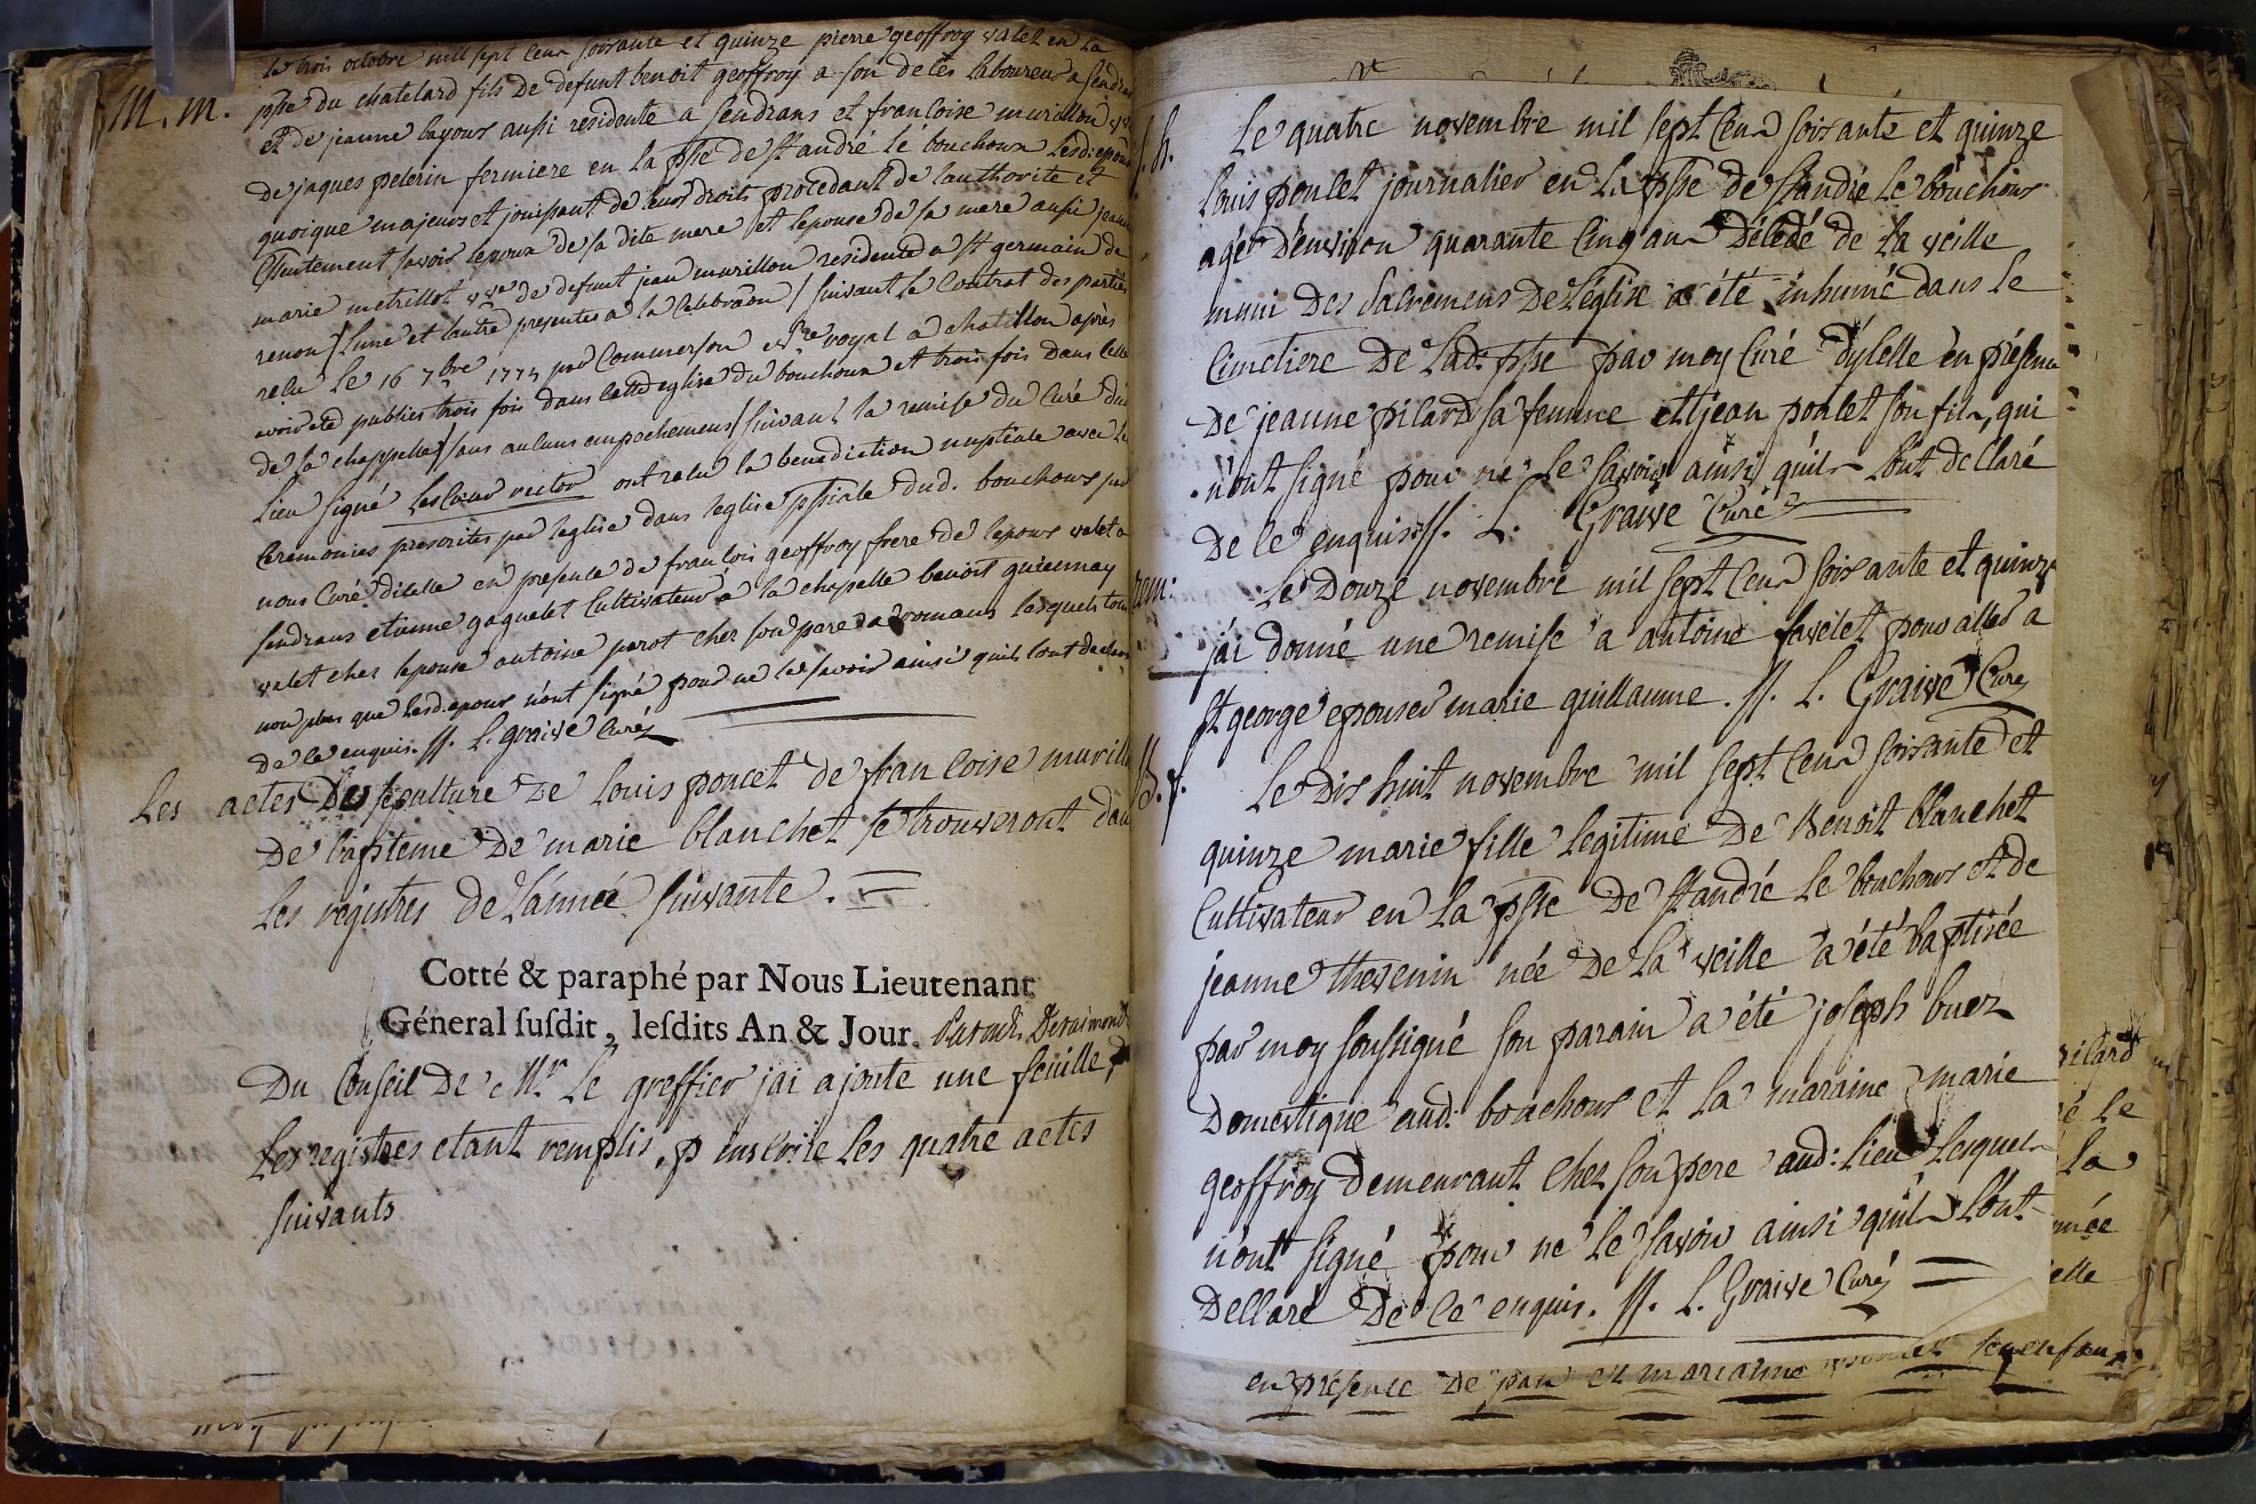 le trois octobre mil sept cens soixante et quinze pierre geoffroy valet en la
M. m. psse du chatelard fils de defunt benoit geoffroy a son deces laboureur a sendrans
et de jeanne bayour aussi residente a sendrans et francoise murillon vve
de jaques pelerin fermiere en la psse de st andré le bouchoux lesd: epoux
quoique majeurs et jouissant de leurs droits procedant de lauthorité et
savoir lepoux de sa dite mere et lepouse de sa mere aussi jeanne
marie metrillot vve de defunt jean murillon residente a st germain de
renon / lune et lautre presentes a la celebraon / suivant le contrat des parties
relu le 16 7bre 1774 par Commerson nre royal a chatillon après
avoir eté publiés trois fois dans cette eglise du bouchoux et trois fois dans celle
de la chappelle / sans aucuns empechemens / suivant la remise du Curé dud
lieu signé rector ont recu la benediction nuptiale avec les
ceremonies prescrites par leglise dans leglise pssiale dud. bouchoux par
nous Curé dicelle en presence de francois geoffroy frere de lepoux valet a
sendrans etienne gaguelet Cultivateur a la chapelle benoit guiennay
valet ches lepouse antoine parot ches son pere a romans lesquels tous
non plus que lesd. epoux n'ont signé pour ne le savoir ainsi quils lont declaré
de ce enquis. ss. L. graive Curé
Les actes De sepulture de Louis poncet de francoise murillon
De bapteme de marie blanchet se trouveront dans
Les régistres de L'année suivante.
Cotté & paraphé par Nous Lieutenant
Géneral susdit, lesdits An & Jour.
Du Conseil de Mr. Le greffier jai ajouté une feuille,
Les registres etant remplis, p inscrire les quatre actes
suivants
Le quatre novembre mil sept cens soixante et quinze
Louis poncet journalier en la psse de st andré le bouchoux
agé d'environ quarante cinq ans décédé de la veille
muni des sacremens de l'église a été inhumé dans le
cimetiere de lad. psse par moy Curé d'ycelle en présence
de jeanne pilard sa femme et jean poncet son fils, qui
n'ont signé pour ne le savoir ainsi qu'ils l'ont declaré
de ce enquis. ss. L. Graive Curé
rem: Le douze novembre mil sept cens soixante et quinze
j'ai donné une remise a antoine favelet pour aller a
st george epouser marie guillaume. ss. L. Graive Curé
B. f. Le dix huit novembre mil sept cens soixante et
quinze marie fille legitime de Benoit blanchet
Cultivateur en la psse de st andré le bouchoux et de
jeanne thevenin née de la veille a été baptisée
par moy soussigné son parain a été joseph buez
domestique aud. bouchoux et la maraine marie
geoffroy demeurant chez son pere aud: lieu lesquels
n'ont signé pour ne le savoir ainsi qu'ils l'ont
declaré de ce enquis. ss. L. Graive Curé
en présence de et marianne